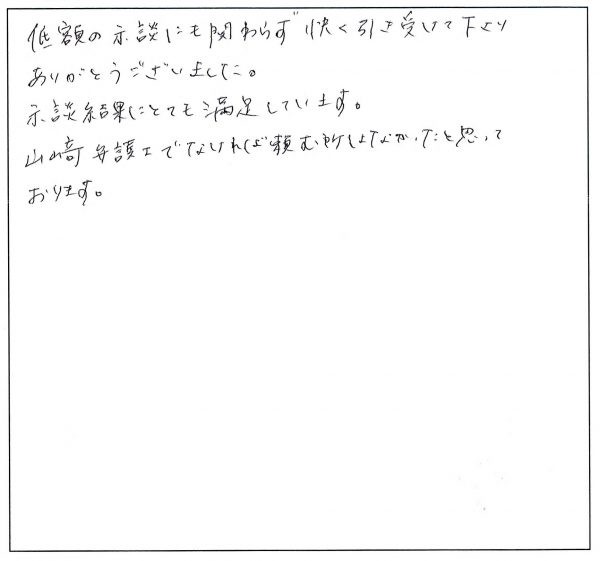 低額の示談にも関わらず快く引き受けて下より
ありがとうございました。
示談結果にとても満足しています。
山﨑弁護士でなければ頼む所はなかったと思って
おります。